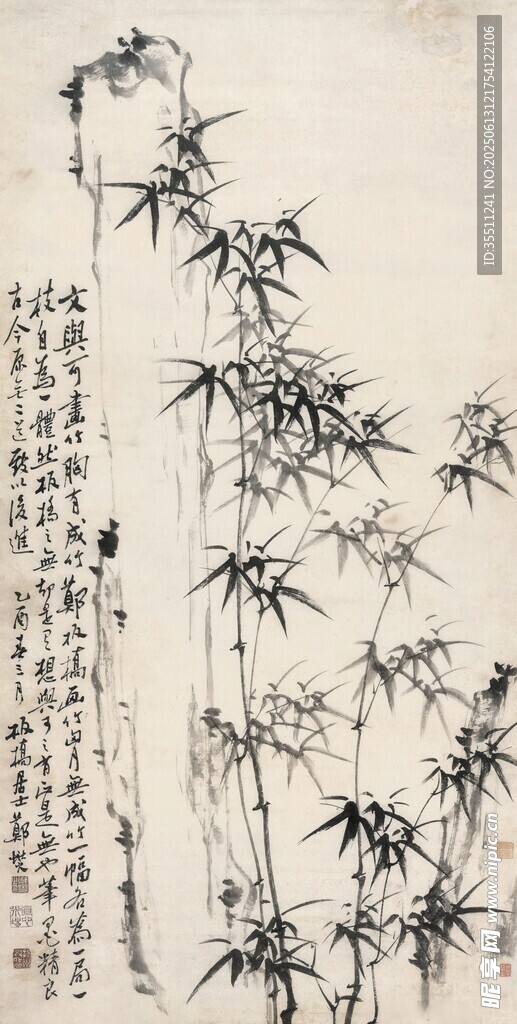 文與可畫竹胸有成竹鄭板橋画竹胸無成竹一幅各為一局一
枝自為一體然板橋之無却是有想與可之有正是無也筆墨精良
古今原無二道敬以後進
乙酉春三月 板橋居士鄭燮
ID:35511241 NO:20250613121754122106
昵享网 www.nipic.cn